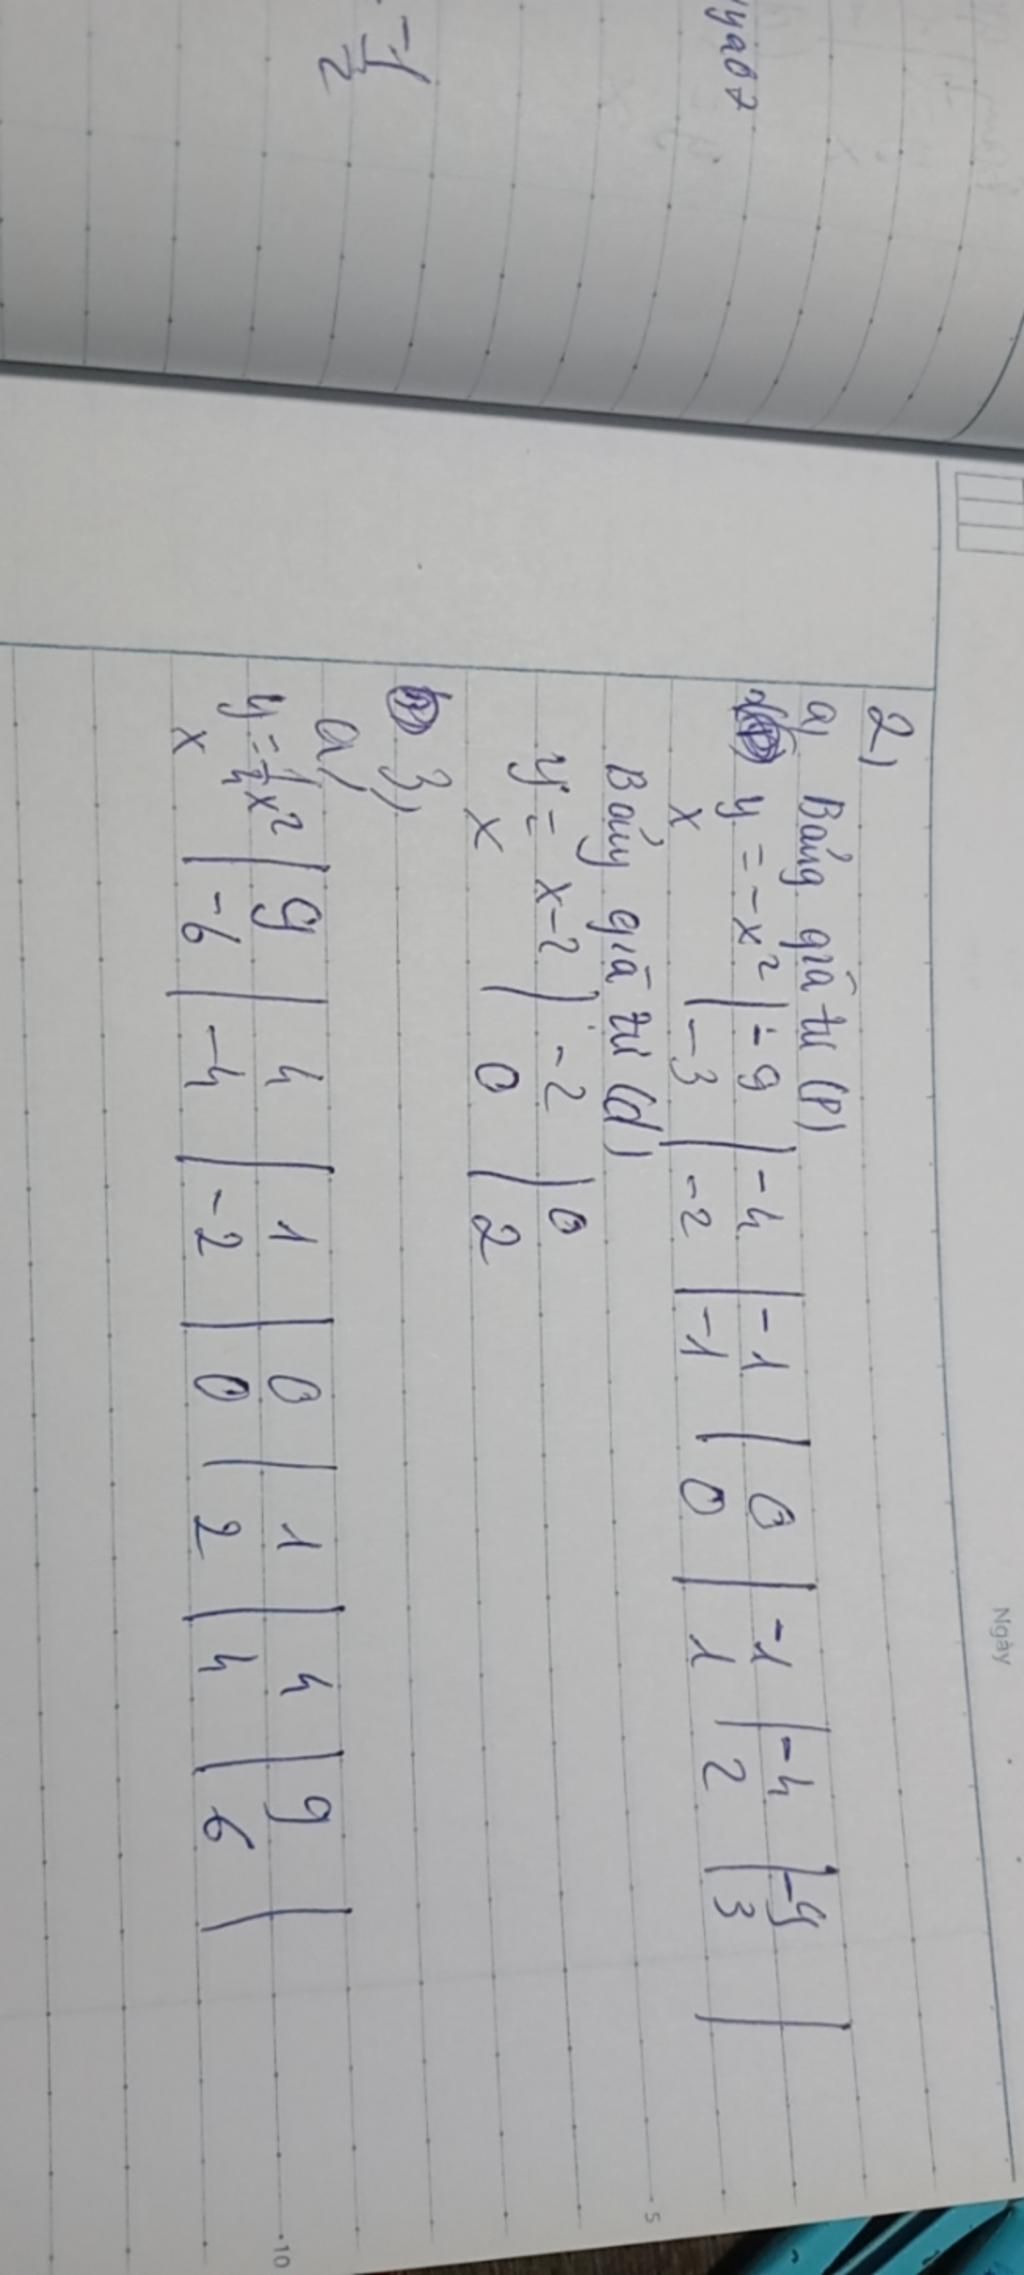 -1
2
Ngày
2)
a, Bảng giá trị (P)
y = -x² | -9 | -4 | -1 | 0 | -1 | -4 | -9 |
x | -3 | -2 | -1 | 0 | 1 | 2 | 3 |
Bảng giá trị (d)
y = x-2 | -2 | 0
x | 0 | 2
3)
a,
y = 1/4 x² | 9 | 4 | 1 | 0 | 1 | 4 | 9 |
x | -6 | -4 | -2 | 0 | 2 | 4 | 6 |
5
10